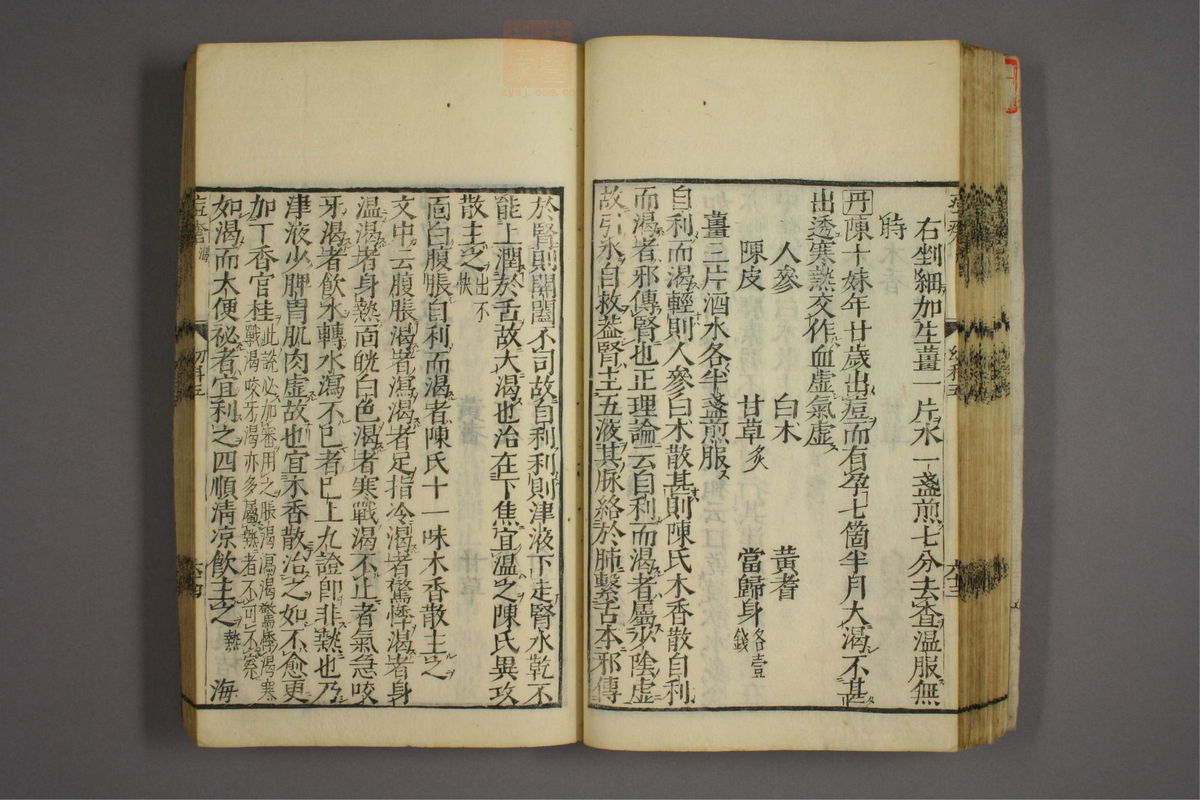 右剉細加生薑一片水一盞煎七分去查溫服無
時
丹陳十妹年廿歲出痘而有孕七箇半月大渴不甚
出透寒熱交作血虛氣虛
人參 白朮 黃耆
陳皮 甘草炙 當歸身各壹錢
薑三片酒水各半盞煎服
自利而渴輕則人參白朮散甚則陳氏木香散自利
而渴者邪傳腎也正理論云自利而渴者屬少陰虛
故引水自救蓋腎主五液其脉絡於肺繫舌本邪傳
於腎則開闔不司故自利利則津液下走腎水乾不
能上潤於舌故大渴也治在下焦宜溫之陳氏異攻
散主之出不快
面白腹脹自利而渴者陳氏十一味木香散主之
文中云腹脹渴者瀉渴者足指冷渴者驚悸渴者身
溫渴者身熱面㿠白色渴者寒戰渴不止者氣急咬
牙渴者飲水轉水瀉不已者已上九證即非熱也乃
津液少脾胃肌肉虛故也宜木香散治之如不愈更
加丁香官桂此說必加審用之脹渴瀉渴驚悸渴寒戰渴咬牙渴亦多屬熱者不可不察
如渴而大便祕者宜利之四順清凉飲主之熱 海